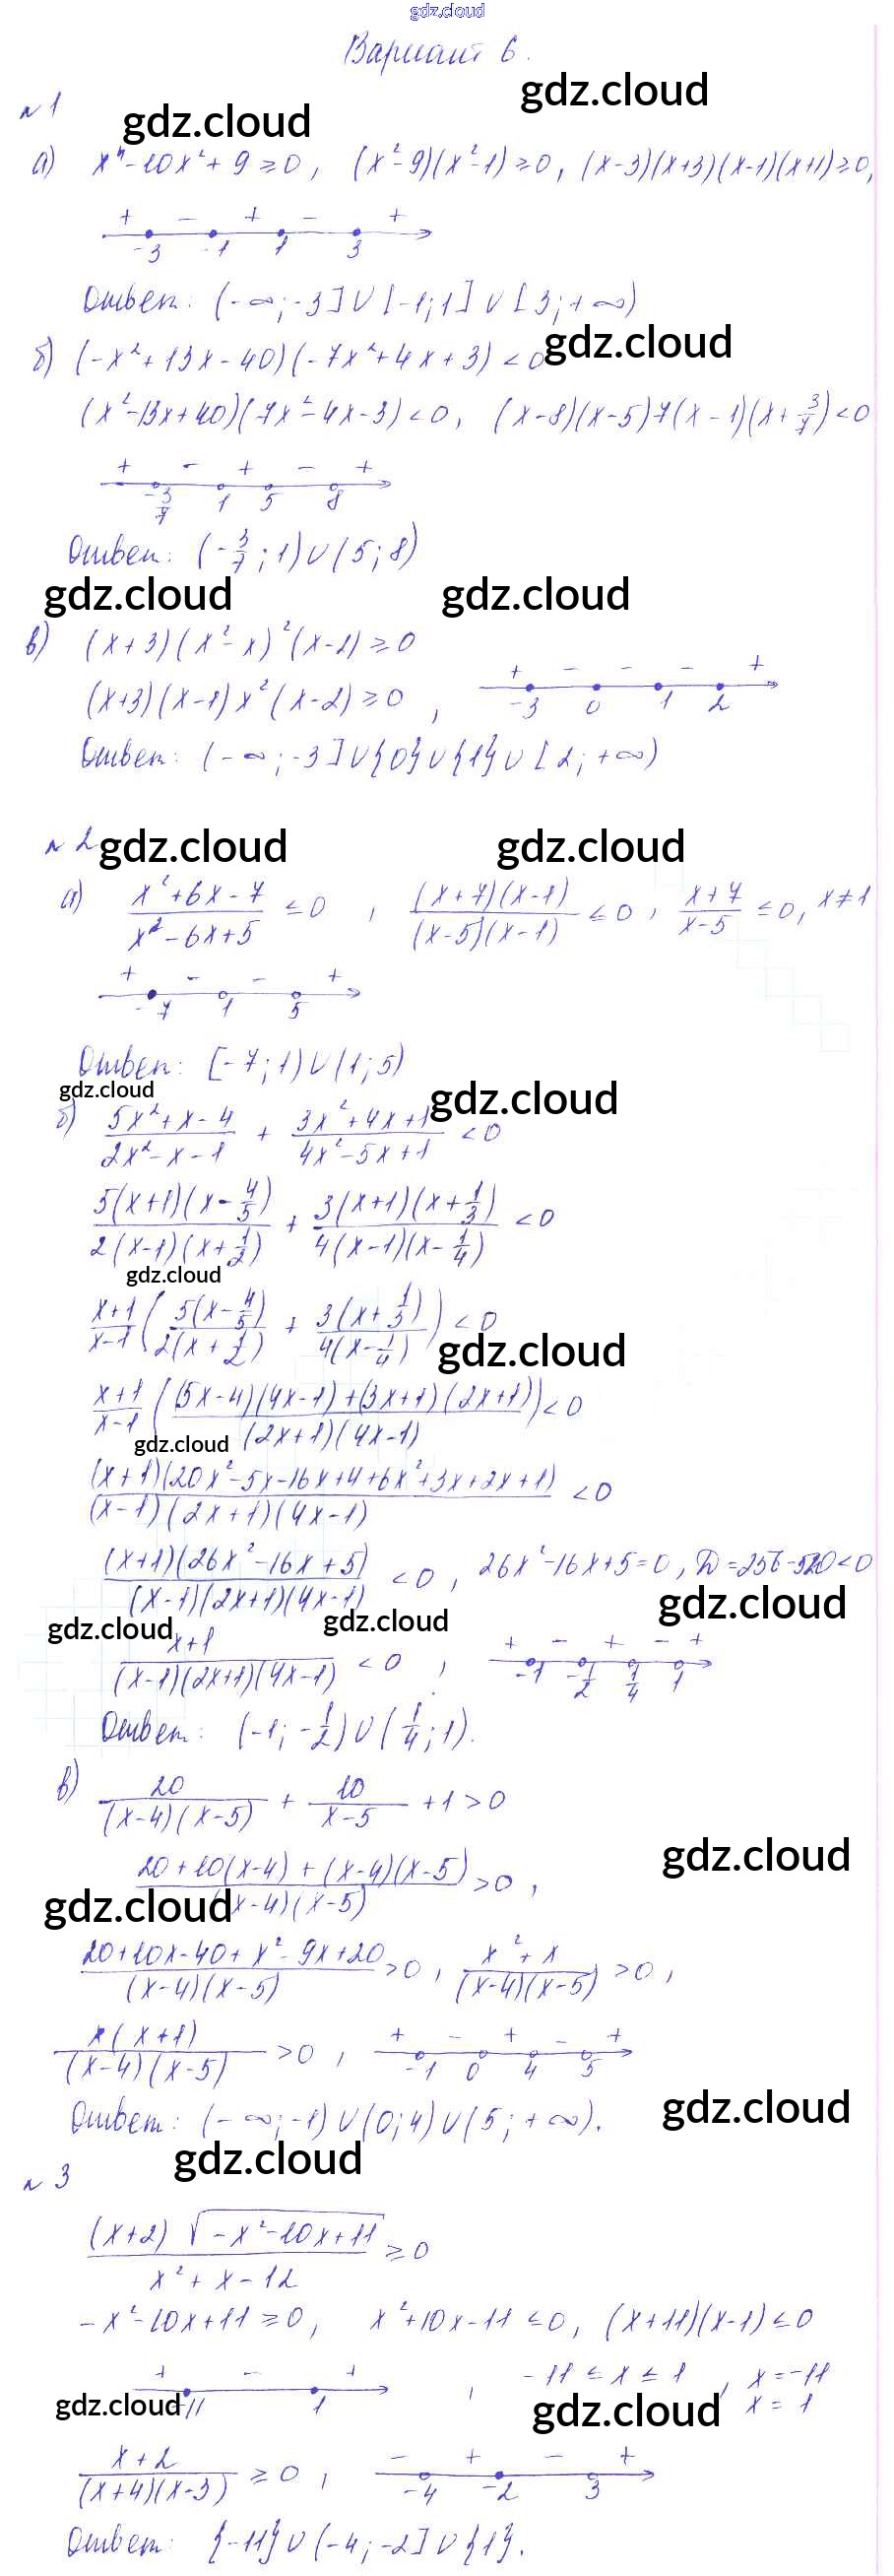 gdz.cloud
Вариант 6.
gdz.cloud
№ 1
gdz.cloud
а) x⁴ - 10x² + 9 ≥ 0, (x² - 9)(x² - 1) ≥ 0, (x-3)(x+3)(x-1)(x+1) ≥ 0,
+ - + - +
-3 -1 1 3
Ответ: (-∞; -3] ∪ [-1; 1] ∪ [3; +∞)
gdz.cloud
б) (-x² + 13x - 40)(-7x² + 4x + 3) < 0
(x² - 13x + 40)(7x² - 4x - 3) < 0, (x-8)(x-5)7(x-1)(x + 3/7) < 0
+ - + - +
-3/7 1 5 8
Ответ: (-3/7; 1) ∪ (5; 8)
gdz.cloud gdz.cloud
в) (x+3)(x² - x)²(x-2) ≥ 0
+ - - - +
(x+3)(x-1)x²(x-2) ≥ 0,
-3 0 1 2
Ответ: (-∞; -3] ∪ {0} ∪ {1} ∪ [2; +∞)
№ 2
gdz.cloud gdz.cloud
а) (x² + 6x - 7)/(x² - 6x + 5) ≤ 0, ((x+7)(x-1))/((x-5)(x-1)) ≤ 0, (x+7)/(x-5) ≤ 0, x ≠ 1
+ - - +
-7 1 5
Ответ: [-7; 1) ∪ (1; 5)
gdz.cloud gdz.cloud
б) (5x² + x - 4)/(2x² - x - 1) + (3x² + 4x + 1)/(4x² - 5x + 1) < 0
(5(x+1)(x - 4/5))/(2(x-1)(x + 1/2)) + (3(x+1)(x + 1/3))/(4(x-1)(x - 1/4)) < 0
gdz.cloud
(x+1)/(x-1) ((5(x - 4/5))/(2(x + 1/2)) + (3(x + 1/3))/(4(x - 1/4))) < 0
gdz.cloud
(x+1)/(x-1) (((5x-4)(4x-1) + (3x+1)(2x+1))/((2x+1)(4x-1))) < 0
gdz.cloud
((x+1)(20x² - 5x - 16x + 4 + 6x² + 3x + 2x + 1))/((x-1)(2x+1)(4x-1)) < 0
((x+1)(26x² - 16x + 5))/((x-1)(2x+1)(4x-1)) < 0, 26x² - 16x + 5 = 0, D = 256 - 520 < 0
gdz.cloud gdz.cloud gdz.cloud
(x+1)/((x-1)(2x+1)(4x-1)) < 0,
+ - + - +
-1 -1/2 1/4 1
Ответ: (-1; -1/2) ∪ (1/4; 1).
в) 20/((x-4)(x-5)) + 10/(x-5) + 1 > 0
gdz.cloud
(20 + 10(x-4) + (x-4)(x-5))/((x-4)(x-5)) > 0,
gdz.cloud
(20 + 10x - 40 + x² - 9x + 20)/((x-4)(x-5)) > 0, (x² + x)/((x-4)(x-5)) > 0,
(x(x+1))/((x-4)(x-5)) > 0,
+ - + - +
-1 0 4 5
Ответ: (-∞; -1) ∪ (0; 4) ∪ (5; +∞).
gdz.cloud
gdz.cloud
№ 3
((x+2)√(-x² - 10x + 11))/(x² + x - 12) ≥ 0
-x² - 10x + 11 ≥ 0, x² + 10x - 11 ≤ 0, (x+11)(x-1) ≤ 0
+ - +
-11 1
, -11 ≤ x ≤ 1, x = -11
x = 1
gdz.cloud gdz.cloud
(x+2)/((x+4)(x-3)) ≥ 0,
- + - +
-4 -2 3
Ответ: {-11} ∪ (-4; -2] ∪ {1}.